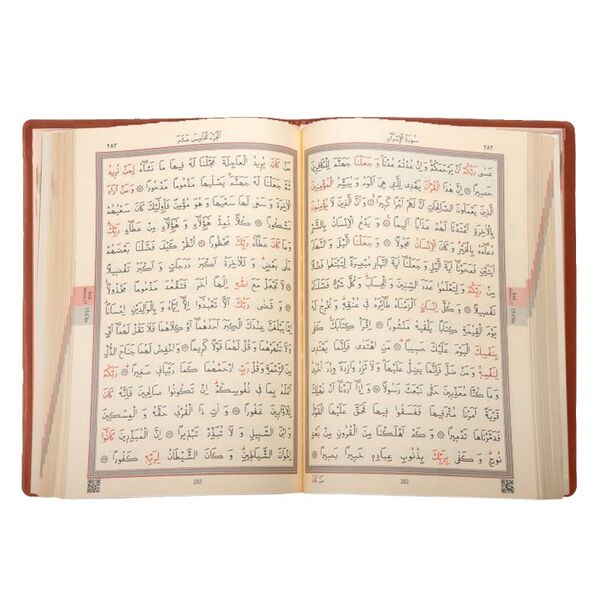 ٢٨٢
سُورَةُ الْاِسْرَاءِ
عَسٰى رَبُّكُمْ اَنْ يَرْحَمَكُمْ وَاِنْ عُدْتُمْ عُدْنَا وَجَعَلْنَا جَهَنَّمَ لِلْكَافِرِينَ
حَصِيرًا ﴿٨﴾ اِنَّ هٰذَا الْقُرْاٰنَ يَهْدِي لِلَّتِي هِيَ اَقْوَمُ وَيُبَشِّرُ الْمُؤْمِنِينَ
الَّذِينَ يَعْمَلُونَ الصَّالِحَاتِ اَنَّ لَهُمْ اَجْرًا كَبِيرًا ﴿٩﴾ وَاَنَّ الَّذِينَ لَا يُؤْمِنُونَ
بِالْاٰخِرَةِ اَعْتَدْنَا لَهُمْ عَذَابًا اَلِيمًا ﴿١٠﴾ وَيَدْعُ الْاِنْسَانُ بِالشَّرِّ
دُعَاءَهُ بِالْخَيْرِ وَكَانَ الْاِنْسَانُ عَجُولًا ﴿١١﴾ وَجَعَلْنَا الَّيْلَ وَالنَّهَارَ
اٰيَتَيْنِ فَمَحَوْنَا اٰيَةَ الَّيْلِ وَجَعَلْنَا اٰيَةَ النَّهَارِ مُبْصِرَةً لِتَبْتَغُوا فَضْلًا
مِنْ رَبِّكُمْ وَلِتَعْلَمُوا عَدَدَ السِّنِينَ وَالْحِسَابَ وَكُلَّ شَيْءٍ فَصَّلْنَاهُ
تَفْصِيلًا ﴿١٢﴾ وَكُلَّ اِنْسَانٍ اَلْزَمْنَاهُ طَائِرَهُ فِي عُنُقِهِ وَنُخْرِجُ لَهُ
يَوْمَ الْقِيٰمَةِ كِتَابًا يَلْقٰيهُ مَنْشُورًا ﴿١٣﴾ اِقْرَأْ كِتَابَكَ كَفٰى
بِنَفْسِكَ الْيَوْمَ عَلَيْكَ حَسِيبًا ﴿١٤﴾ مَنِ اهْتَدٰى فَاِنَّمَا يَهْتَدِي
لِنَفْسِهِ وَمَنْ ضَلَّ فَاِنَّمَا يَضِلُّ عَلَيْهَا وَلَا تَزِرُ وَازِرَةٌ وِزْرَ اُخْرٰى
وَمَا كُنَّا مُعَذِّبِينَ حَتّٰى نَبْعَثَ رَسُولًا ﴿١٥﴾ وَاِذَا اَرَدْنَا اَنْ نُهْلِكَ
قَرْيَةً اَمَرْنَا مُتْرَفِيهَا فَفَسَقُوا فِيهَا فَحَقَّ عَلَيْهَا الْقَوْلُ
فَدَمَّرْنَاهَا تَدْمِيرًا ﴿١٦﴾ وَكَمْ اَهْلَكْنَا مِنَ الْقُرُونِ مِنْ بَعْدِ
نُوحٍ وَكَفٰى بِرَبِّكَ بِذُنُوبِ عِبَادِهِ خَبِيرًا بَصِيرًا ﴿١٧﴾
مَنْ كَانَ
282
اَلْجُزْءُ الْخَامِسُ عَشَرَ
٢٨٣
مَنْ كَانَ يُرِيدُ الْعَاجِلَةَ عَجَّلْنَا لَهُ فِيهَا مَا نَشَاءُ لِمَنْ نُرِيدُ
ثُمَّ جَعَلْنَا لَهُ جَهَنَّمَ يَصْلٰيهَا مَذْمُومًا مَدْحُورًا ﴿١٨﴾ وَمَنْ اَرَادَ
الْاٰخِرَةَ وَسَعٰى لَهَا سَعْيَهَا وَهُوَ مُؤْمِنٌ فَاُولٰئِكَ كَانَ سَعْيُهُمْ
مَشْكُورًا ﴿١٩﴾ كُلًّا نُمِدُّ هٰؤُلَاءِ وَهٰؤُلَاءِ مِنْ عَطَاءِ رَبِّكَ
وَمَا كَانَ عَطَاءُ رَبِّكَ مَحْظُورًا ﴿٢٠﴾ اُنْظُرْ كَيْفَ فَضَّلْنَا بَعْضَهُمْ
عَلٰى بَعْضٍ وَلَلْاٰخِرَةُ اَكْبَرُ دَرَجَاتٍ وَاَكْبَرُ تَفْضِيلًا ﴿٢١﴾
لَا تَجْعَلْ مَعَ اللّٰهِ اِلٰهًا اٰخَرَ فَتَقْعُدَ مَذْمُومًا مَخْذُولًا ﴿٢٢﴾
وَقَضٰى رَبُّكَ اَلَّا تَعْبُدُوا اِلَّا اِيَّاهُ وَبِالْوَالِدَيْنِ اِحْسَانًا
اِمَّا يَبْلُغَنَّ عِنْدَكَ الْكِبَرَ اَحَدُهُمَا اَوْ كِلَاهُمَا فَلَا تَقُلْ لَهُمَا اُفٍّ
وَلَا تَنْهَرْهُمَا وَقُلْ لَهُمَا قَوْلًا كَرِيمًا ﴿٢٣﴾ وَاخْفِضْ لَهُمَا جَنَاحَ الذُّلِّ
مِنَ الرَّحْمَةِ وَقُلْ رَبِّ ارْحَمْهُمَا كَمَا رَبَّيَانِي صَغِيرًا ﴿٢٤﴾ رَبُّكُمْ
اَعْلَمُ بِمَا فِي نُفُوسِكُمْ اِنْ تَكُونُوا صَالِحِينَ فَاِنَّهُ كَانَ
لِلْاَوَّابِينَ غَفُورًا ﴿٢٥﴾ وَاٰتِ ذَا الْقُرْبٰى حَقَّهُ وَالْمِسْكِينَ
وَابْنَ السَّبِيلِ وَلَا تُبَذِّرْ تَبْذِيرًا ﴿٢٦﴾ اِنَّ الْمُبَذِّرِينَ كَانُوا
اِخْوَانَ الشَّيَاطِينِ وَكَانَ الشَّيْطَانُ لِرَبِّهِ كَفُورًا ﴿٢٧﴾
283